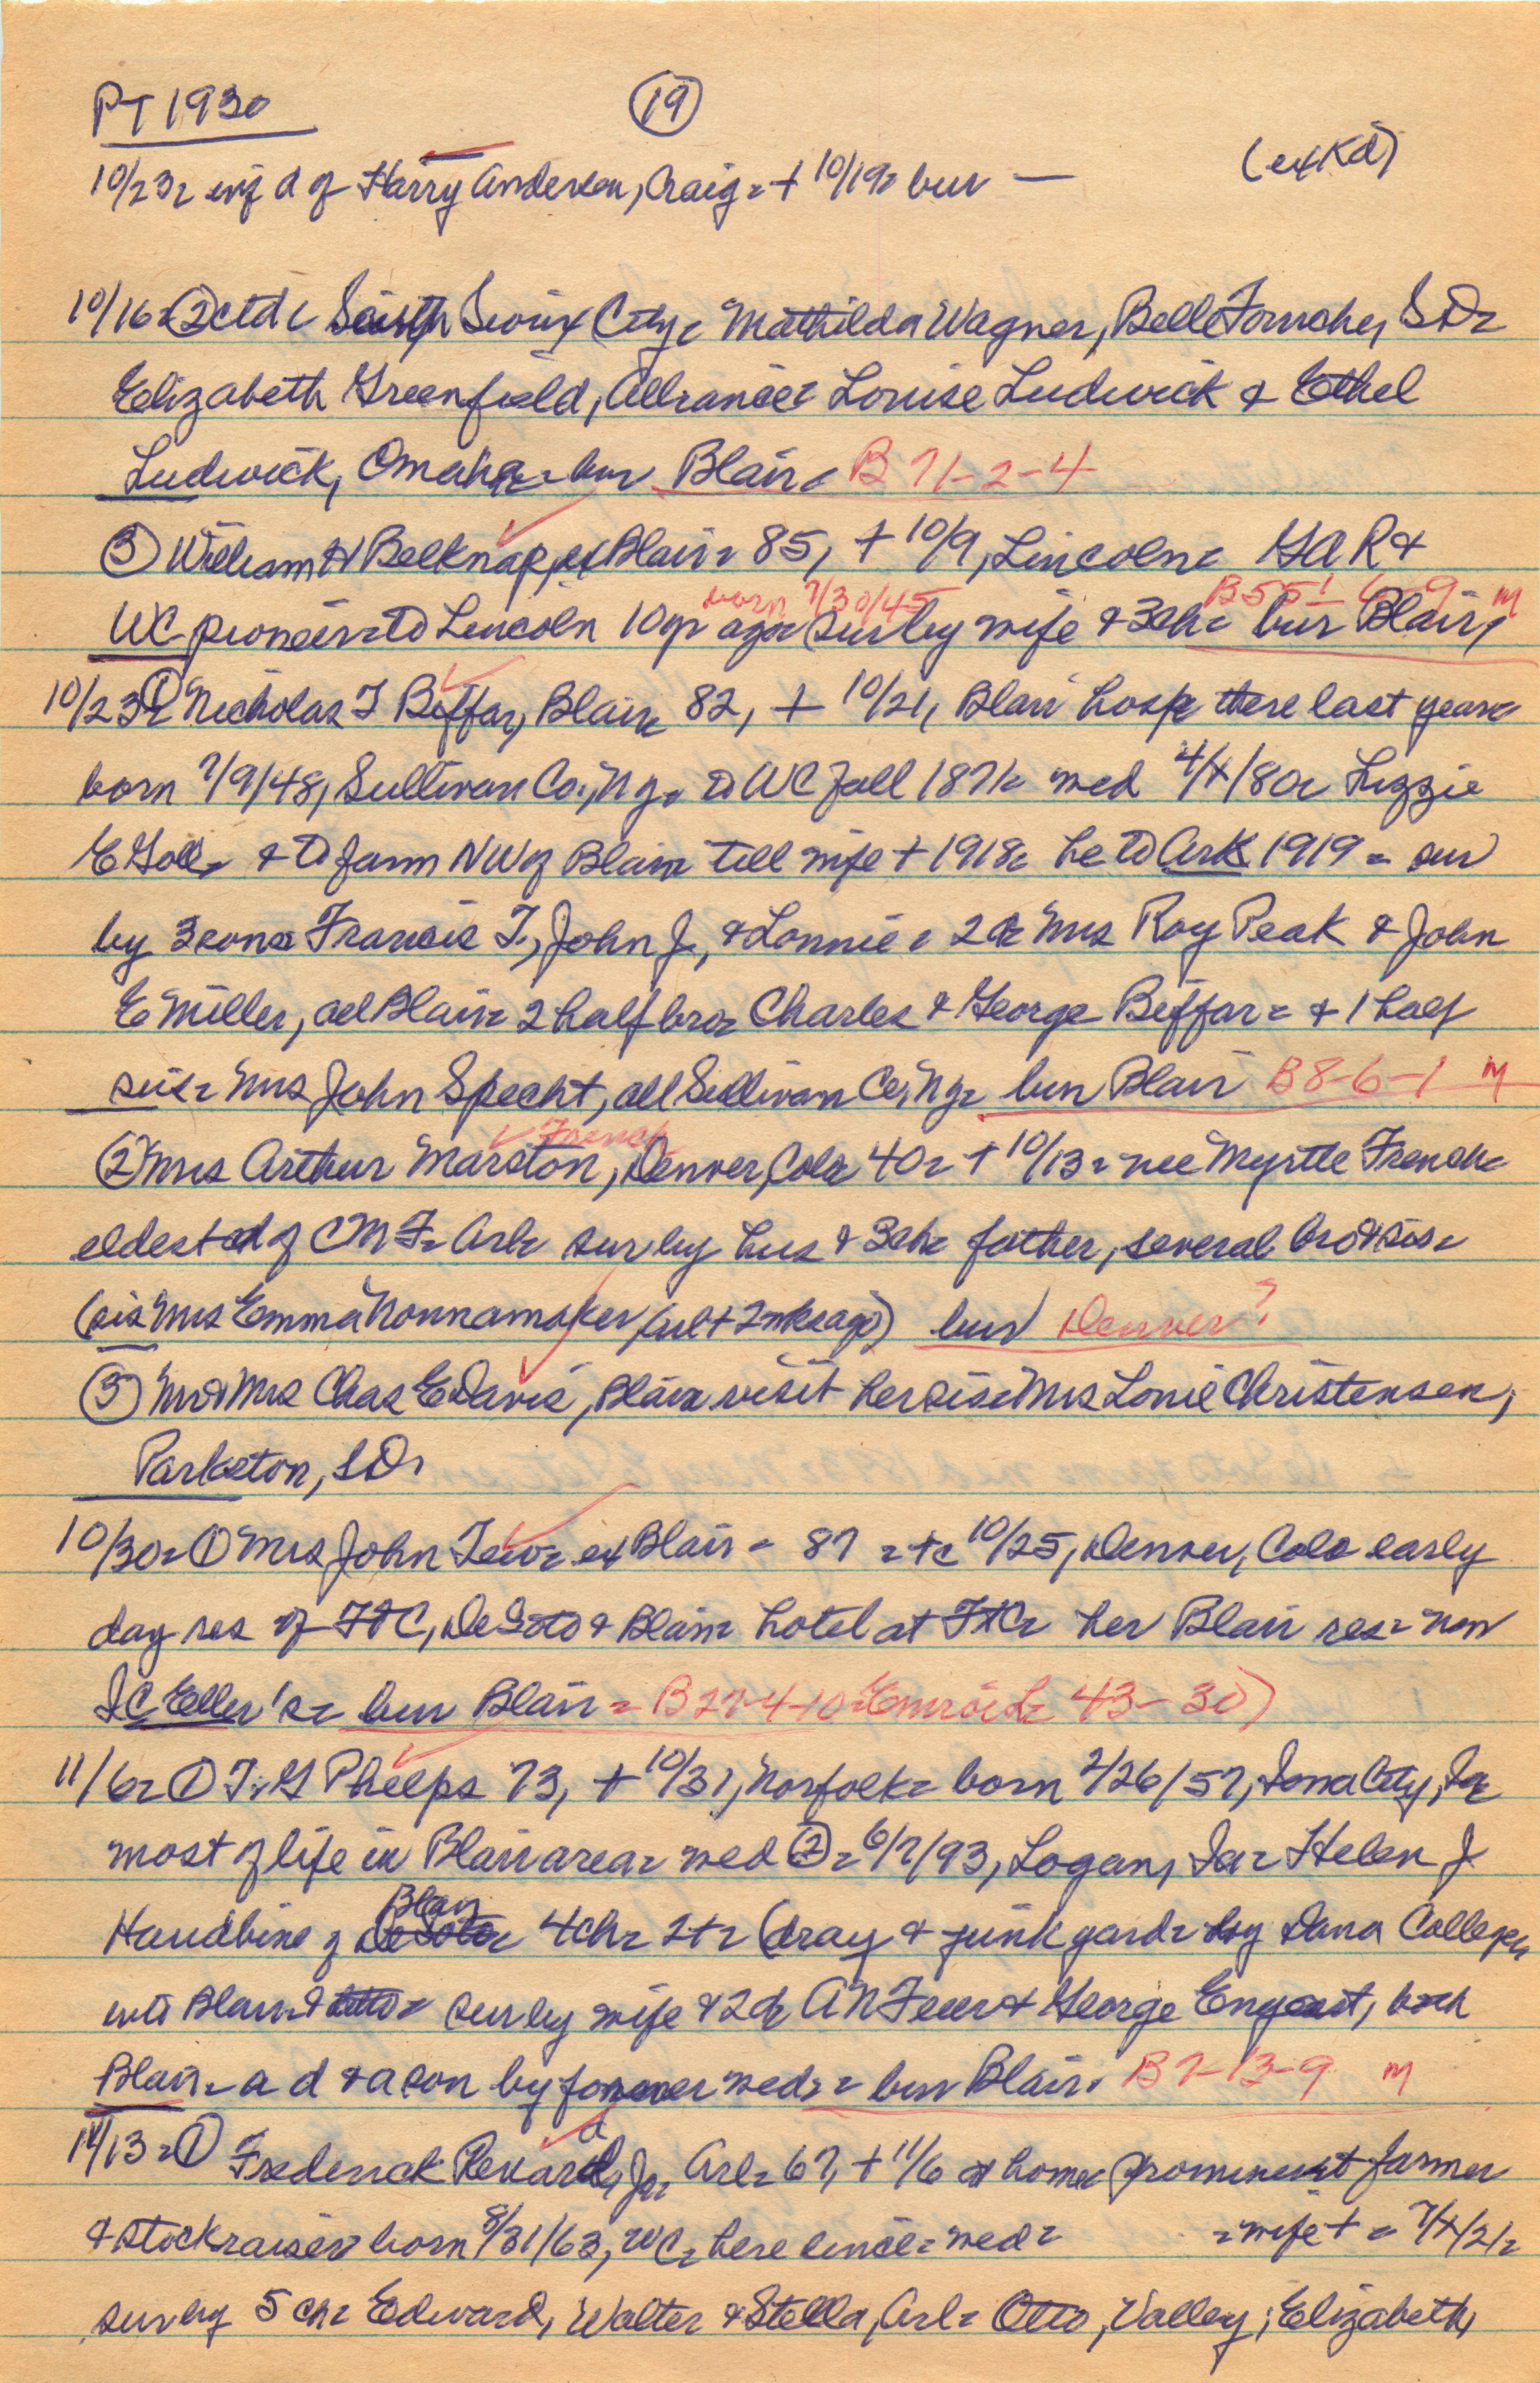 PT 1930 (19)
(exKd)
10/23= inf d of Harry Anderson, Craig= + 10/19= bur —
10/16= ② ctd= South Sioux City= Mathilda Wagner, Belle Fourche, SD=
Elizabeth Greenfield, Alliance= Louise Ludwick & Ethel
Ludwick, Omaha= bur Blair= B 71-2-4
③ William H Belknap, ex Blair= 85, + 10/9, Lincoln= GAR &
born 7/30/45 m
WC pioneer= to Lincoln 10 yr ago= sur by wife & 3 ch= bur Blair,
10/23= ① Nicholas T Beffar, Blair= 82, + 10/21, Blair hosp= there last year=
born 7/9/48, Sullivan Co, NY= to WC fall 1871= med 4/4/80= Lizzie
E Goll= & to farm NW of Blair= till wife + 1918= he to Ark 1919= sur
by 3 sons= Francis T, John J, & Lonnie= 2 d= Mrs Roy Peak & John
E Miller, all Blair= 2 half bro= Charles & George Beffar= & 1 half
sis= Mrs John Specht, all Sullivan Co, NY= bur Blair B8-6-1 m
French
② Mrs Arthur Marston, Denver, Colo= 40= + 10/13= nee Myrtle French=
eldest d of CM F= Arl= sur by hus & 3 ch= father, several bro & sis=
(sis Mrs Emma Nonnamaker, Arl + 2 wks ago) bur Denver?
③ Mr & Mrs Chas E Davis, Blair= visit her sis= Mrs Lonie Christensen,
Parkston, SD=
10/30= ① Mrs John = ex Blair= 87 =+= 10/25, Denver, Colo= early
day res of FtC, DeSoto & Blair= hotel at FtC= her Blair res= now
IC Eller's= bur Blair= B 27-4-10= 43-30)
11/6= ① T.G Phelps 73, + 10/31, Norfolk= born 2/26/57, Iowa City, Ia=
most of life in Blair area= med ②= 6/7/93, Logan, Ia= Helen J
Blair
of DeSoto= 4 ch= 2+= (dray & junk yard= by Dana College,
Blair= sur by wife & 2 d= AN & George Engeart, both
Blair= a d & a son by former med== bur Blair. B7-13-9 m
11/13= ① Frederick Jr= Arl= 67, + 11/6 at home= prominent farmer
& stockraiser= born 8/31/63, WC= here since= med= = wife + = 7/4/21=
sur by 5 ch= Edward, Walter & Stella, Arl= Otto, Valley; Elizabeth,